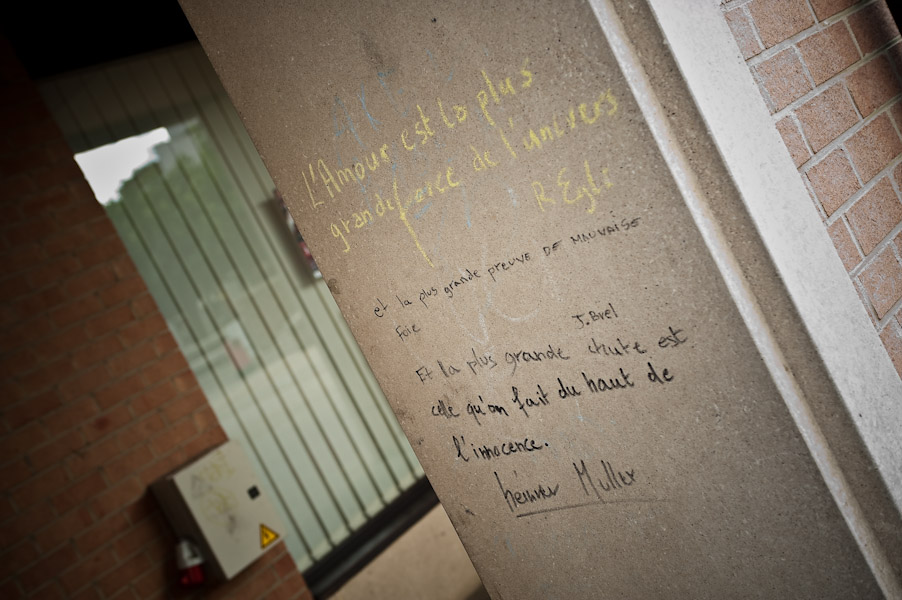 L'Amour est la plus
grande force de l'univers
R Egli
et la plus grande preuve DE MAUVAISE
Foie
J. Brel
Et la plus grande chute est
celle qu'on fait du haut de
l'innocence.
heiner Muller